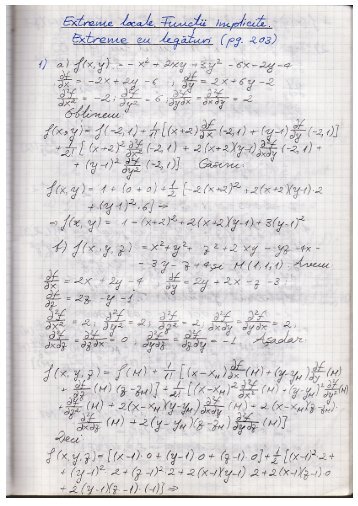 Extreme locale. Funcții implicite.
Extreme cu legături (pg. 203)
1) a) f(x,y) = -x² + 2xy + 3y² - 6x - 2y - 4
∂f/∂x = -2x + 2y - 6 , ∂f/∂y = 2x + 6y - 2
∂²f/∂x² = -2; ∂²f/∂y² = 6; ∂²f/∂y∂x = ∂²f/∂x∂y = 2
Obținem:
f(x,y) = f(-2,1) + 1/1! [(x+2) ∂f/∂x (-2,1) + (y-1) ∂f/∂y (-2,1)]
+ 1/2! [(x+2)² ∂²f/∂x² (-2,1) + 2(x+2)(y-1) ∂²f/∂x∂y (-2,1) +
+ (y-1)² ∂²f/∂y² (-2,1)]
f(x,y) = 1 + (0+0) + 1/2 [-2(x+2)² + 2(x+2)(y-1)·2
+ (y-1)²·6] ⇒
⇒ f(x,y) = 1 - (x+2)² + 2(x+2)(y-1) + 3(y-1)²
b) f(x,y,z) = x² + y² + z² + 2xy - yz - 4x -
- 3y - z + 4 M(1,1,1) Avem
∂f/∂x = 2x + 2y - 4 ∂f/∂y = 2y + 2x - z - 3;
∂f/∂z = 2z - y - 1
∂²f/∂x² = 2; ∂²f/∂y² = 2; ∂²f/∂z² = 2, ∂²f/∂x∂y = ∂²f/∂y∂x = 2,
∂²f/∂x∂z = ∂²f/∂z∂x = 0, ∂²f/∂y∂z = ∂²f/∂z∂y = -1 Așadar:
f(x,y,z) = f(M) + 1/1! [(x-x_M) ∂f/∂x (M) + (y-y_M) ∂f/∂y (M)
+ ∂f/∂z (M) (z-z_M)] + 1/2! [(x-x_M)² ∂²f/∂x² (M) + (y-y_M)² ∂²f/∂y² (M) +
∂²f/∂z² (M) + 2(x-x_M)(y-y_M) ∂²f/∂x∂y (M) + 2(x-x_M)(z-z_M)·
∂²f/∂x∂z (M) + 2(y-y_M)(z-z_M) ∂²f/∂y∂z (M)]
Deci
f(x,y,z) = [(x-1)·0 + (y-1)·0 + (z-1)·0] + 1/2 [(x-1)²·2 +
+ (y-1)²·2 + (z-1)²·2 + 2(x-1)(y-1)·2 + 2(x-1)(z-1)·0
+ 2(y-1)(z-1)·(-1)] ⇒